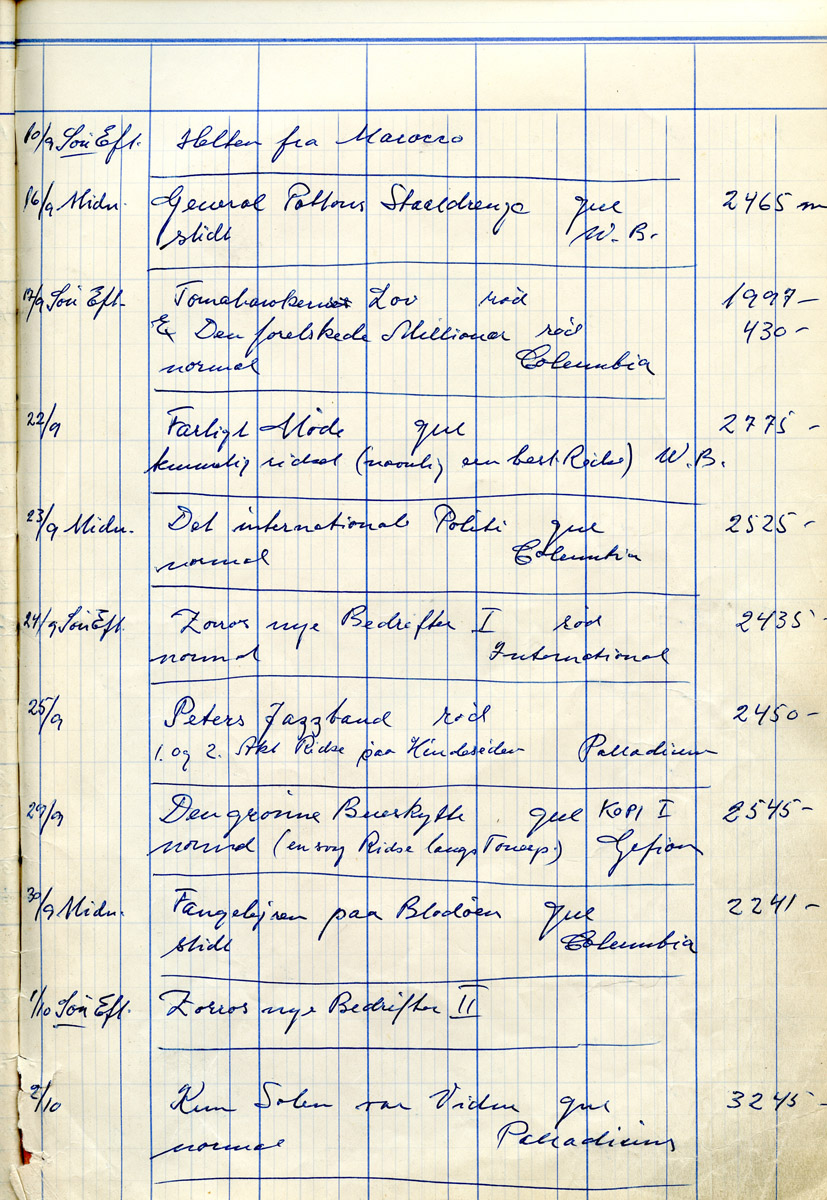 10/9 Søn Eft. Helten fra Marocco
16/9 Midn. General Pattons Staaldrenge gul 2465 m
slidt W. B.
17/9 Søn Eft. Tomahawkens Lov rød 1997 -
Ex Den forelskede Millionær rød 430 -
normal Columbia
22/9 Farligt Møde gul 2775 -
temmelig ridset (navnlig een best. Ridse) W. B.
23/9 Midn. Det internationale Politi gul 2525 -
normal Columbia
24/9 Søn Eft. Zorros nye Bedrifter I rød 2435 -
normal International
25/9 Peters Jazzband rød 2450 -
1. og 2. Akt Ridse paa Hindesiden Palladium
29/9 Den grønne Bueskytte gul KOPI I 2545 -
normal (en svag Ridse langs Tonesp.) Gefion
30/9 Midn. Fangelejren paa Blodøen gul 2241 -
slidt Columbia
1/10 Søn Eft. Zorros nye Bedrifter II
2/10 Kun Solen var Vidne gul 3245 -
normal Palladium